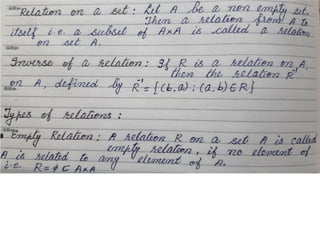 Relation on a set : Let A be a non empty set.
Then a relation from A to
itself i.e. a subset of A×A is called a relation
on set A.
Inverse of a relation : If R is a relation on A,
then the relation R⁻¹
on A, defined by R⁻¹ = {(b,a) : (a,b) ∈ R}
Types of relations :
Empty Relation : A relation R on a set A is called
empty relation, if no element of
A is related to any element of A.
i.e. R = ϕ ⊂ A×A